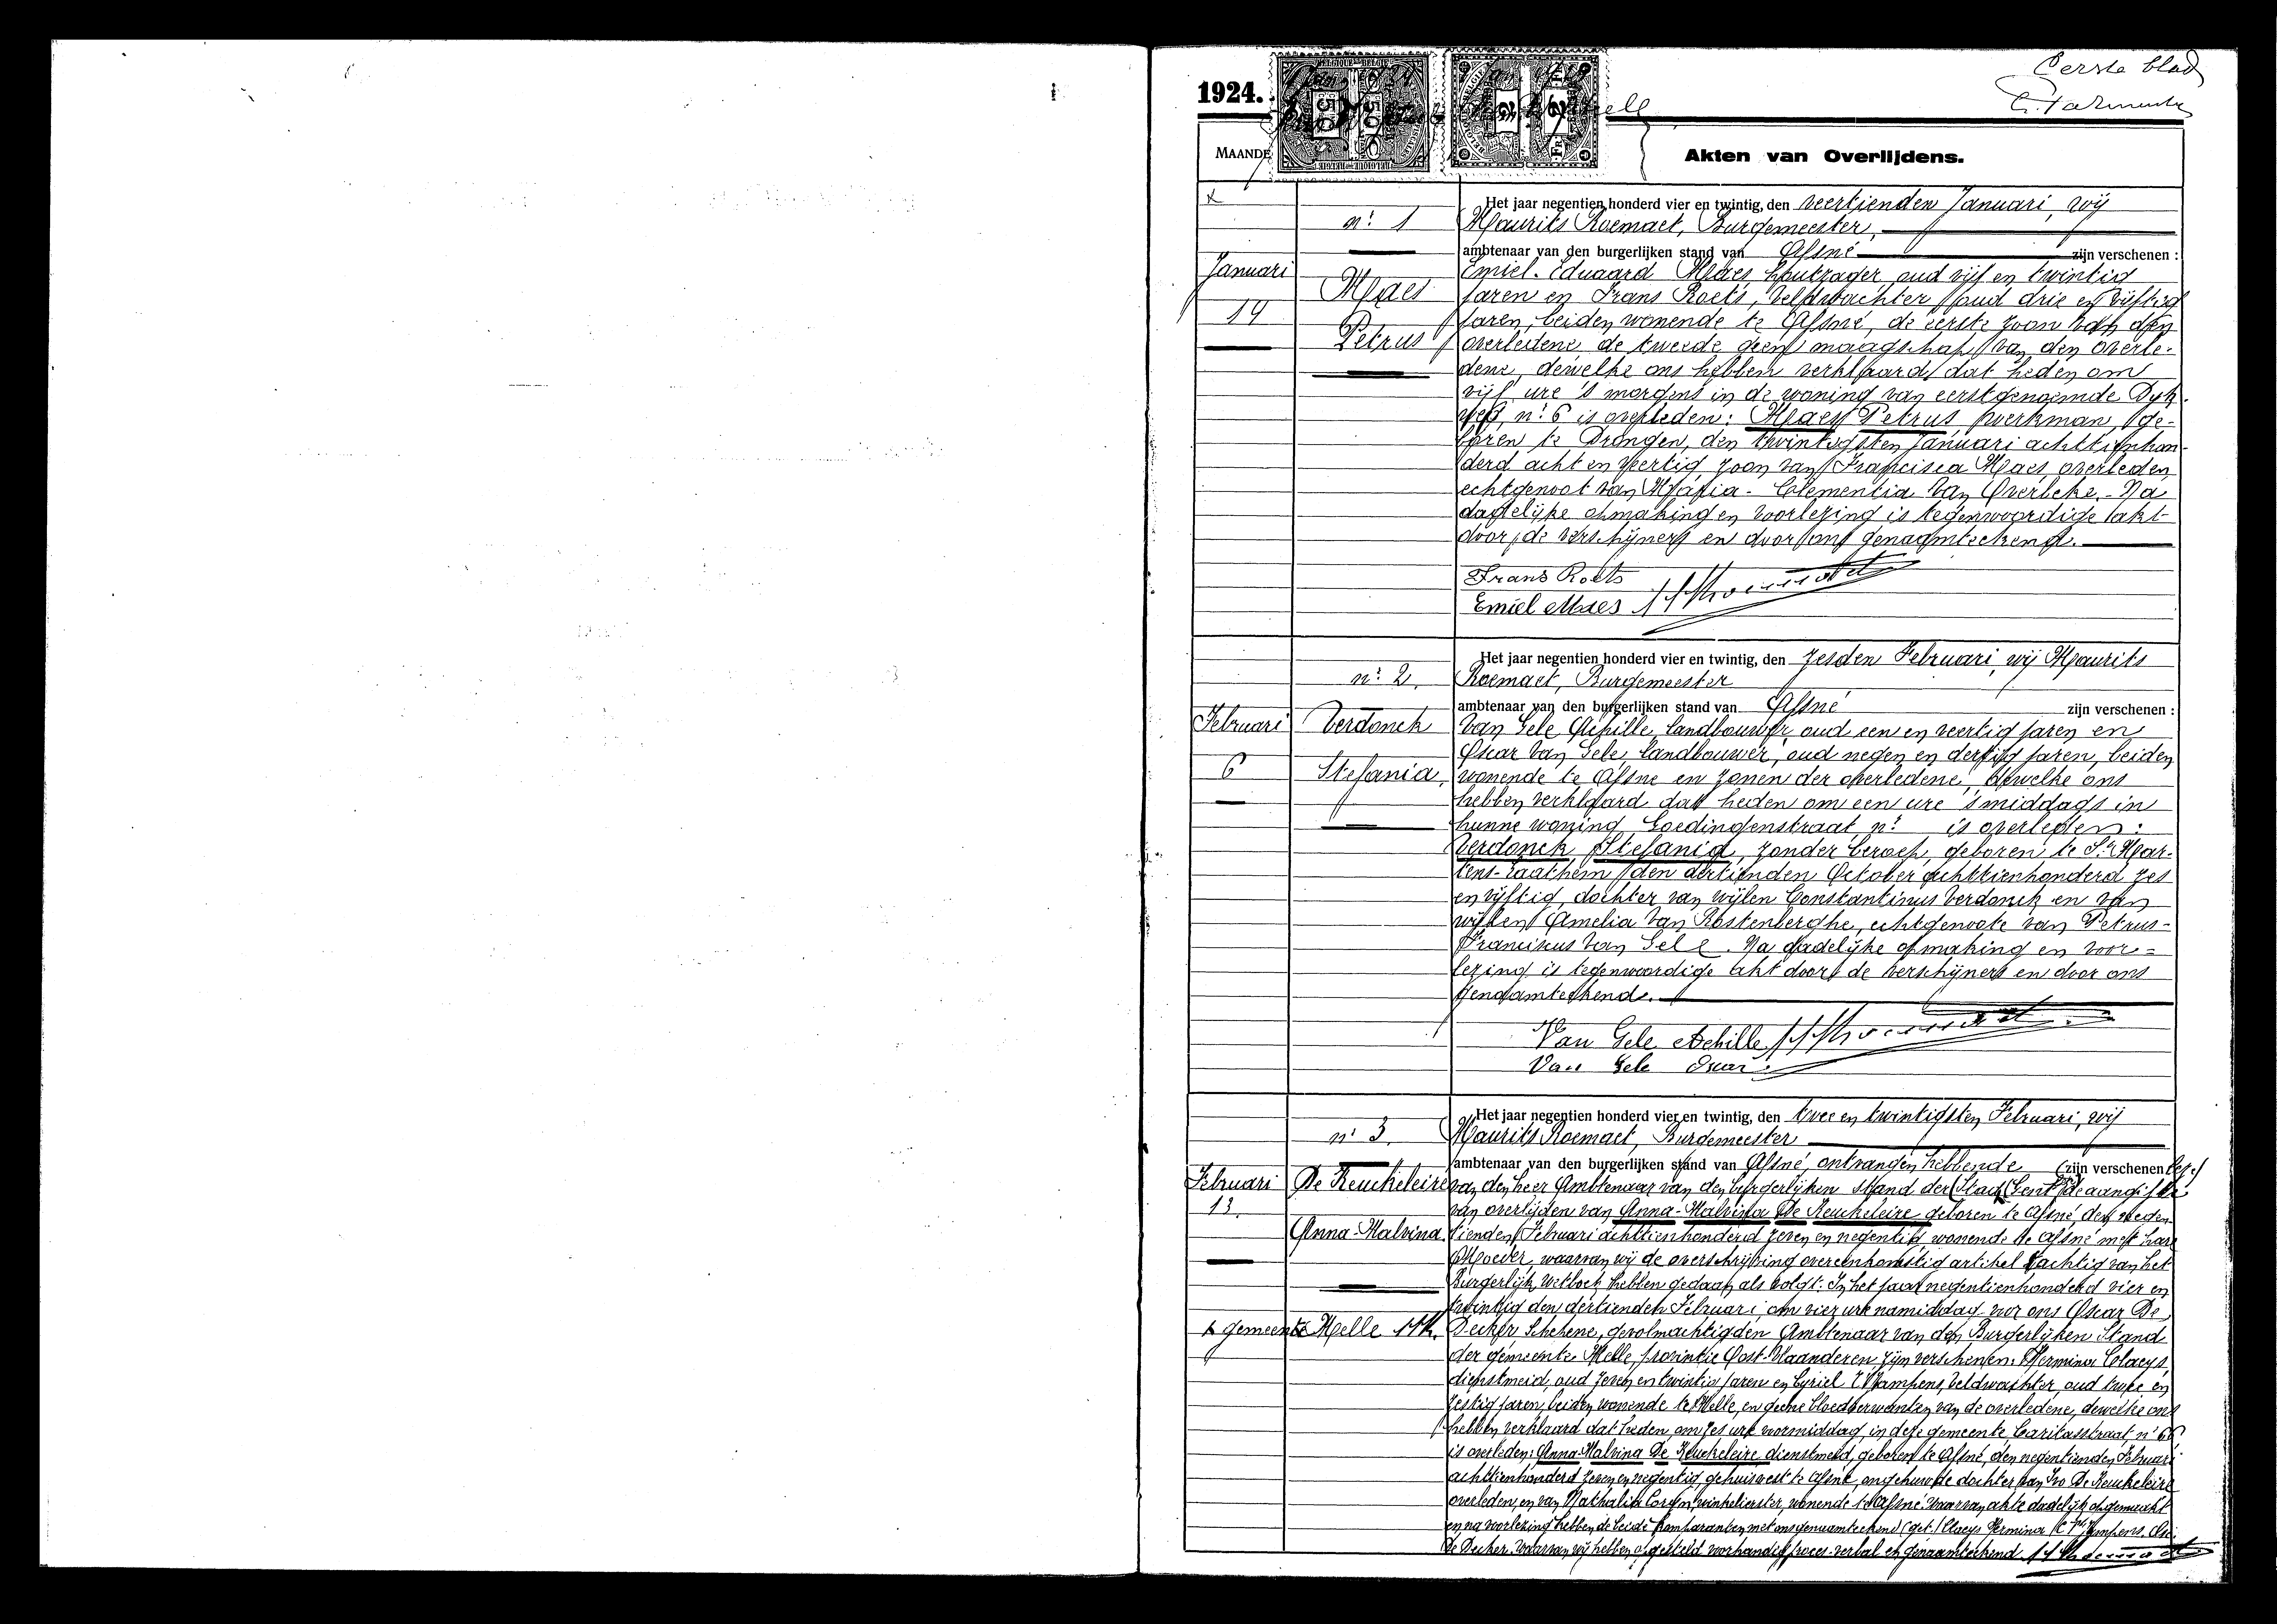 Eerste blad
1924.
MAANDE
Akten van Overlijdens.
Het jaar negentien honderd vier en twintig, den veertienden Januari, wij
n.r 1
Maurits Roemaet, Burgemeester,
ambtenaar van den burgerlijken stand van Afsné zijn verschenen :
Januari
14
Maes
Petrus
Emiel-Eduaard Maes houtzager, oud vijf en twintig
jaren en Frans Roets, veldwachter, oud drie en vijftig
jaren, beiden wonende te Afsné, de eerste zoon van den
overledene de tweede geen maagschap van den overle-
dene, dewelke ons hebben verklaard dat heden om
vijf ure 's morgens in de woning van eerstgenoemde Dyk
weg, n.r 6 is overleden: Maes Petrus werkman, ge-
boren te Drongen, den twintigsten Januari achttienhon-
derd acht en veertig zoon van Francisca Maes overleden,
echtgenoot van Maria-Clementia Van Overbeke. - Na
dadelijke opmaking en voorlezing is tegenwoordige akt
door de verschijners en door ons genaamteekend.
Frans Roets
Emiel Maes
Het jaar negentien honderd vier en twintig, den zesden Februari, wij Maurits
n.r 2.
Roemaet, Burgemeester
ambtenaar van den burgerlijken stand van Afsné zijn verschenen :
Februari
6
Verdonck
Stefania
Van Gele Achille, landbouwer, oud een en veertig jaren en
Oscar Van Gele, landbouwer, oud negen en dertig jaren, beiden
wonende te Afsné en zonen der overledene, dewelke ons
hebben verklaard dat heden om een ure 's middags in
hunne woning Goedingenstraat n.r is overleden:
Verdonck Stefania, zonder beroep, geboren te St. Mar-
tens-Laathem den dertienden October achttienhonderd zes
en vijftig, dochter van wijlen Constantinus Verdonck en van
wijlen Amelia Van Rostenberghe, echtgenoote van Petrus-
Franciskus Van Gele. Na dadelijke opmaking en voor=
lezing is tegenwoordige akt door de verschijners en door ons
genaamteekend.
Van Gele Achille
Van Gele Oscar
Het jaar negentien honderd vier en twintig, den twee en twintigsten Februari, wij
n.r 3.
Maurits Roemaet, Burgemeester
ambtenaar van den burgerlijken stand van Afsné, ontvangen hebbende (zijn verschenen
Februari
13.
De Keuckeleire
Anna-Malvina
gemeente Melle
van den heer Ambtenaar van den burgerlijken stand der Stad Gent de aangifte
van overlijden van Anna-Malvina De Keuckeleire geboren te Afsné, den negen-
tienden Februari achttienhonderd zeven en negentig wonende te Afsné met hare
Moeder, waarvan wij de overschrijving overeenkomstig artikel tachtig van het
Burgerlijk Wetboek hebben gedaan als volgt: In het jaar negentienhonderd vier en
twintig den dertienden Februari, om vier ure namiddag voor ons Oscar De
Decker Schepene, gevolmachtigden Ambtenaar van den Burgerlijken Stand
der gemeente Melle, provintie Oost-Vlaanderen, zijn verschenen: Hermina Claeys
dienstmeid, oud zeven en twintig jaren en Cyriel Wampens, veldwachter, oud twee en
zestig jaren, beiden wonende te Melle, en geene bloedverwanten van de overledene, dewelke ons
hebben verklaard dat heden, om zes ure voormiddag, in deze gemeente, Caritasstraat n.r 66
is overleden: Anna-Malvina De Keuckeleire dienstmeid, geboren te Afsné, den negentienden Februari
achttienhonderd zeven en negentig, gehuisvest te Afsné, ongehuwde dochter van Ivo De Keuckeleire
overleden, en van Nathalia winkelierster, wonende te Afsné. Waarvan akte dadelijk opgemaakt
en na voorlezing hebben de beide komparanten met ons genaamteekend (get.) Claeys Hermina
De Decker. Waarvan wij hebben opgesteld voorhandig proces-verbal en genaamteekend